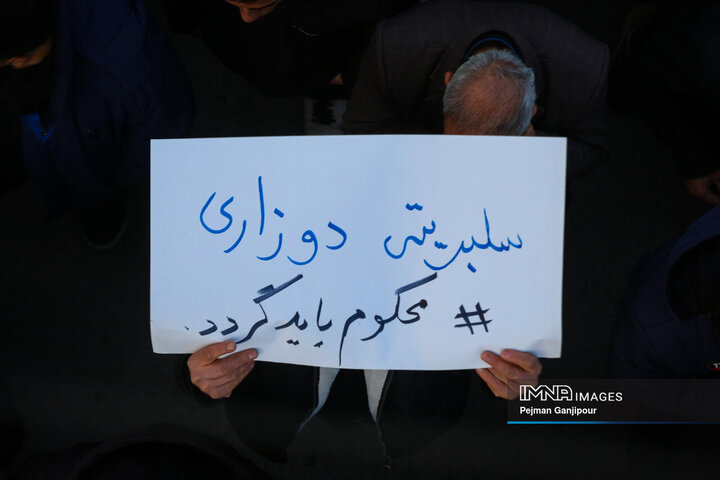 سلبریتی دوزاری
# محکوم باید گردد.
IMNA IMAGES
Pejman Ganjipour